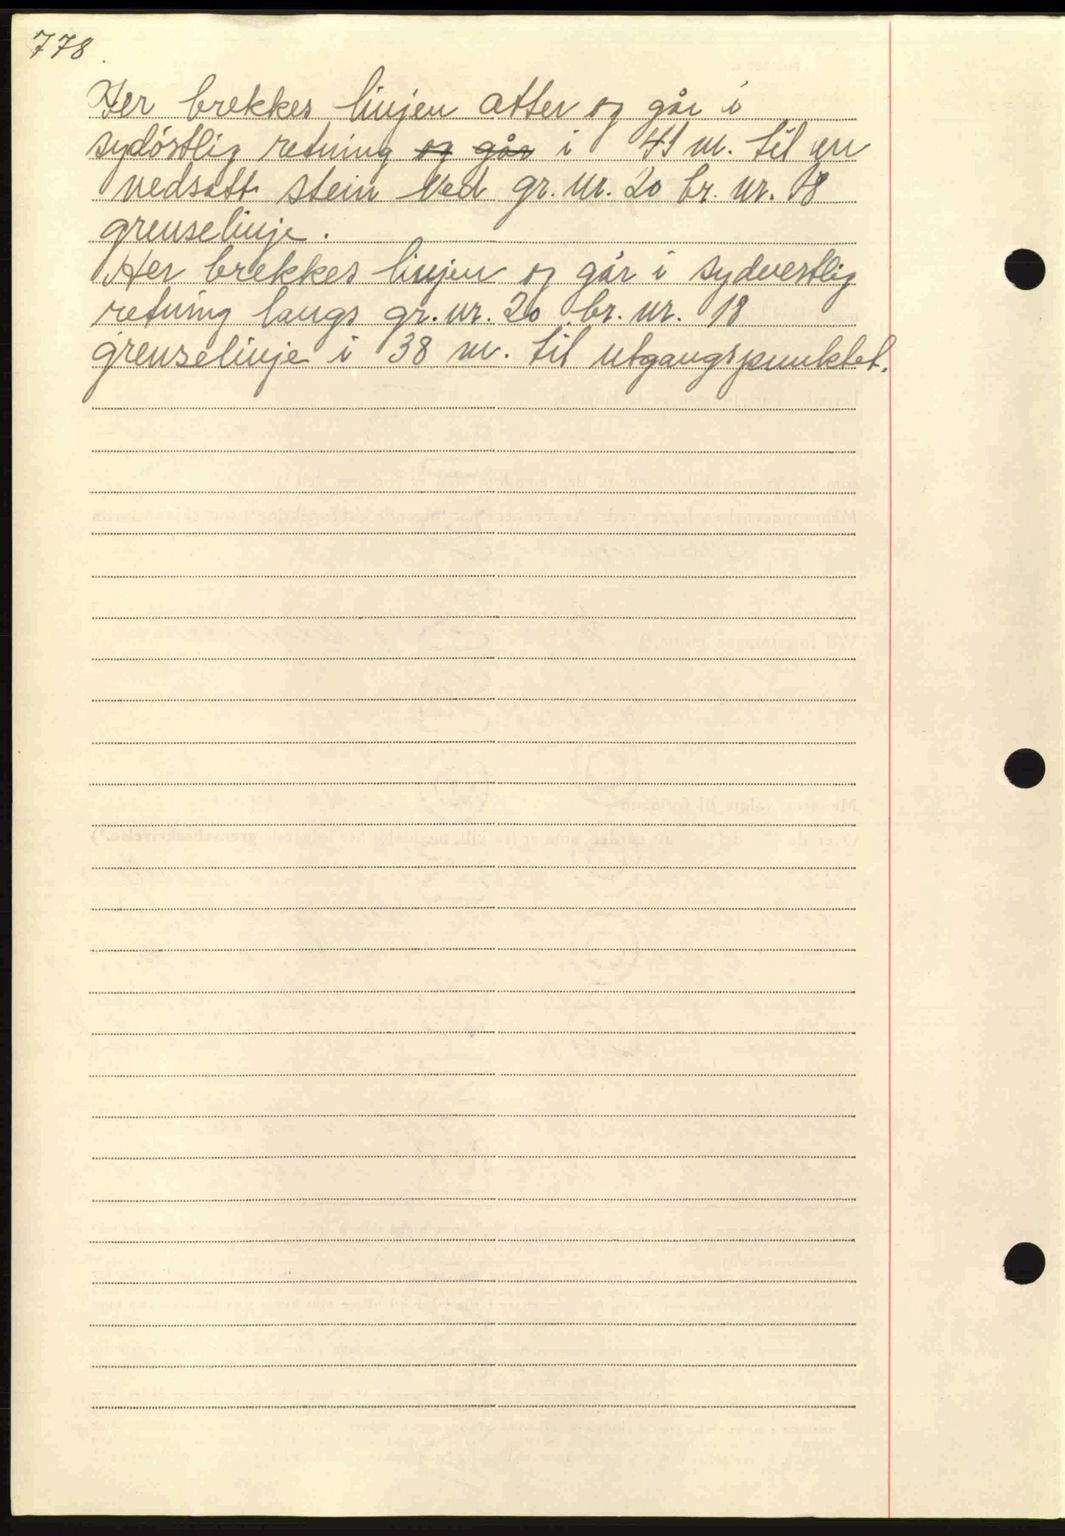 778
Her brekkes linjen atter og går i
sydöstlig retning ~~og går~~ i 41 m. til en
nedsatt stein ved gr. nr. 20 br. nr. 18
grenselinje.
Her brekkes linjen og går i sydvestlig
retning langs gr. nr. 20 br. nr. 18
grenselinje i 38 m. til utgangspunktet.